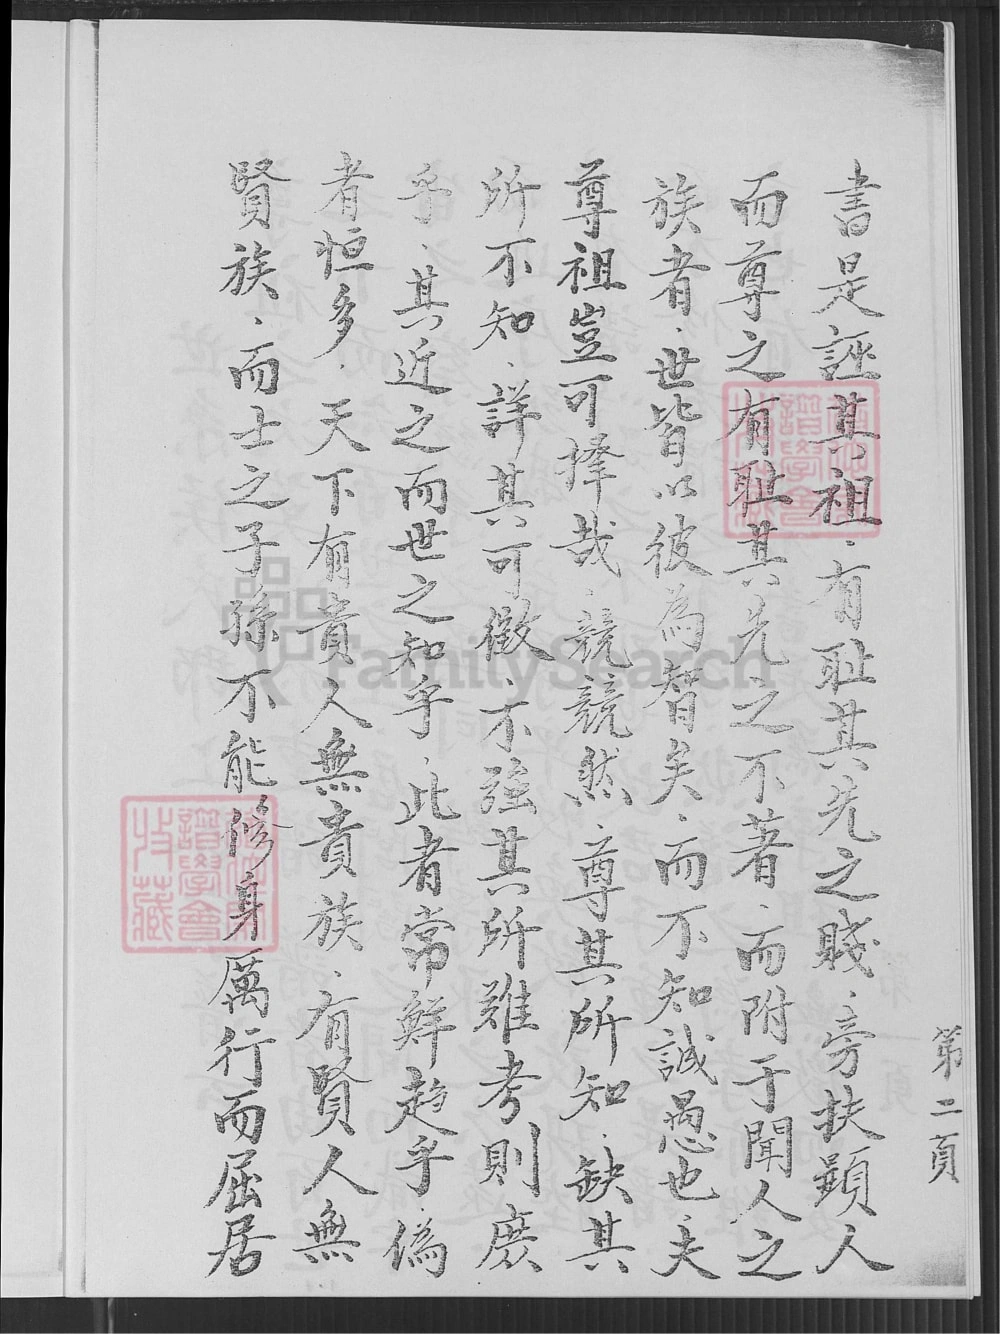 書是誣其祖、有耻其先之賤、旁扶顯人
而尊之有耻其先之不著、而附于聞人之
族者、世皆以彼為智矣、而不知誠愚也、夫
尊祖豈可擇哉、競競然、尊其所知、缺其
所不知、詳其可徵、不強其所難考則庶
乎、其近之而世之知乎、此者常鮮趋乎、偽
者恒多、天下有貴人無貴族、有賢人無
賢族、而士之子孫不能修身厲行而屈居
第二頁
譜學會
收藏
譜學會
收藏
FamilySearch